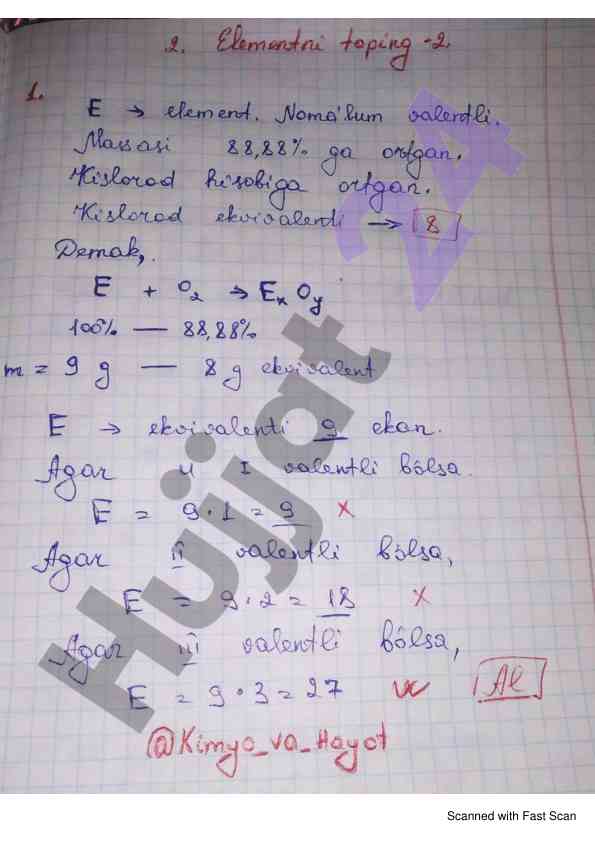 2. Elementni toping -2.
1.
E → element. Noma'lum valentli.
Massasi 88,88% ga ortgan.
Kislorod hisobiga ortgan.
Kislorod ekvivalenti → 8
Demak,
E + O2 → Ex Oy
100% — 88,88%
m = 9 g — 8 g ekvivalent
E → ekvivalenti 9 ekan.
Agar u I valentli bólsa.
E = 9·1 = 9 ×
Agar II valentli bólsa,
E = 9·2 = 18 ×
Agar III valentli bólsa,
E = 9·3 = 27 Al
@Kimyo_va_Hayot
Hujjat 24
Scanned with Fast Scan